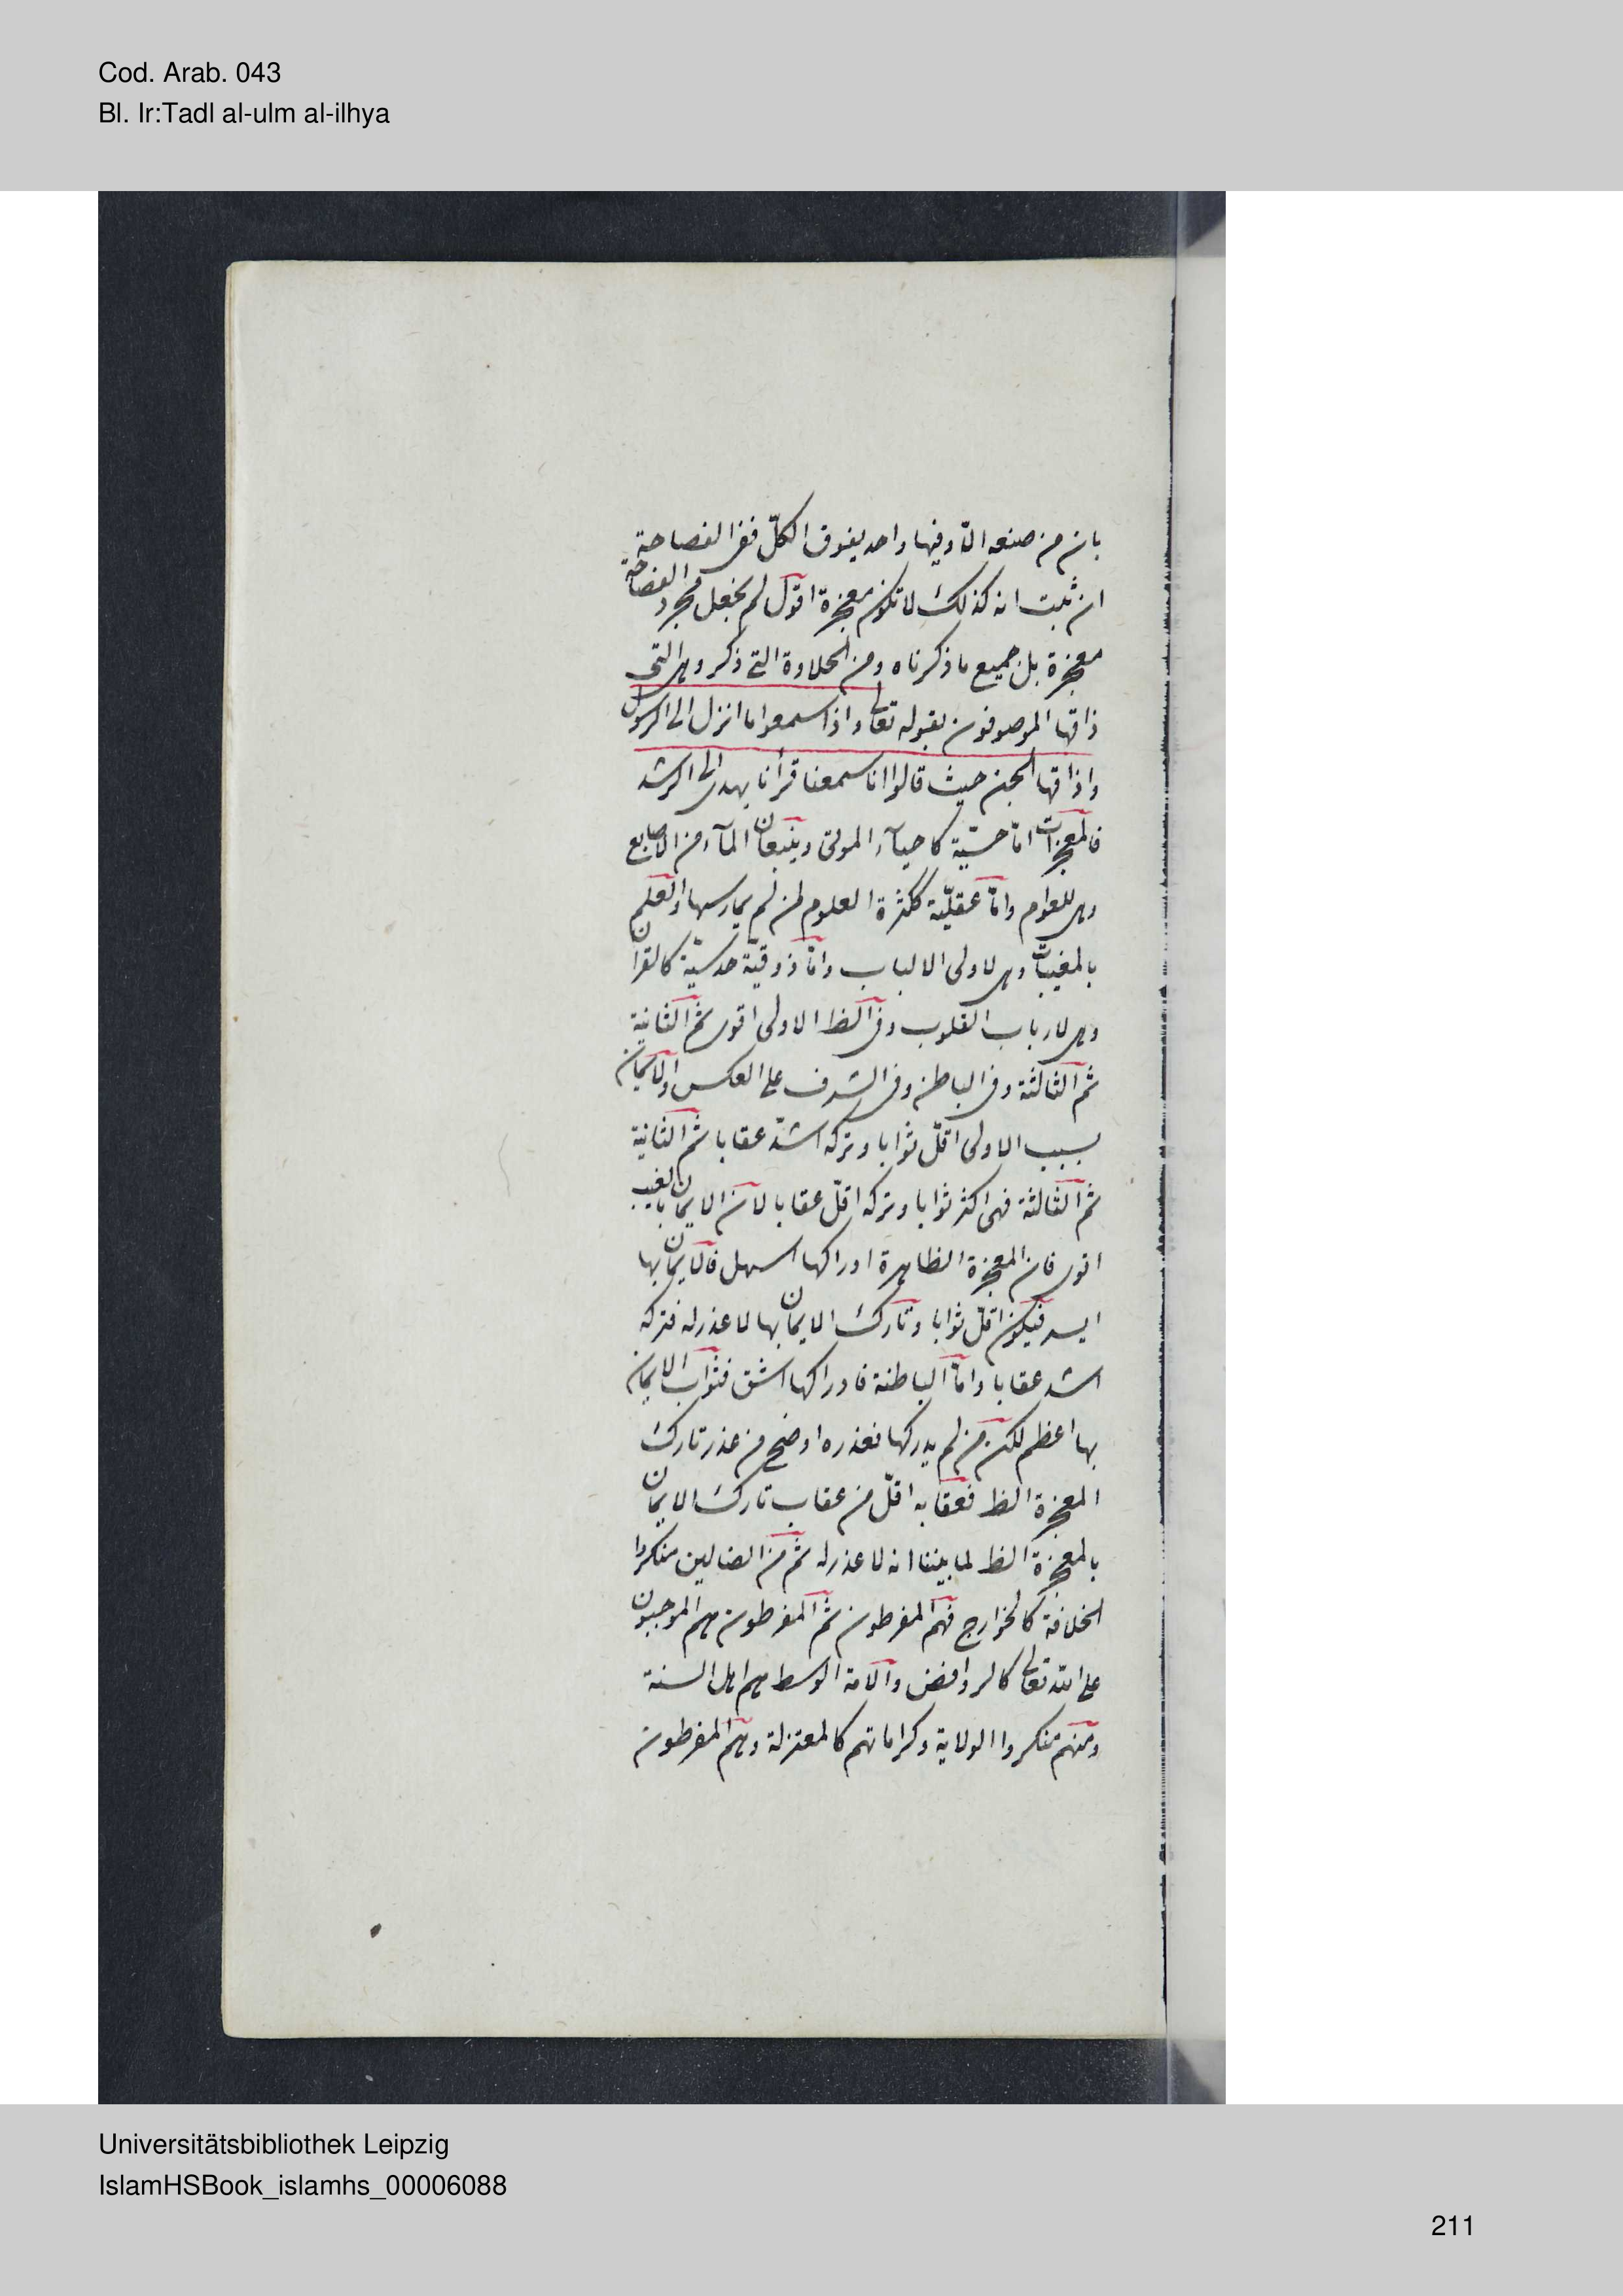 Cod. Arab. 043
Bl. Ir:Tadl al-ulm al-ilhya
بان من صنعه الا وفيها واحد يفوق الكلّ ففى الفصاحة
ان ثبت انه كذلك لا تكون معجزة اقول لم نجعل مجرد الفصاحة
معجزة بل جميع ما ذكرناه ومن الحلاوة التى ذكر وهى التى
ذاقها الموصوفون بقوله تعالى واذا سمعوا ما انزل الى الرسول
واذاقها الجن حيث قالوا انا سمعنا قرأنا يهدى الى الرشد
فالمعجزات امّا حسّيّة كاحيآء الموتى وينبعان المآء من الاصابع
وهى للعوام وامّا عقليّة ككثرة العلوم لمن لم يمارسها والعلم
بالمغيبات وهى لاولى الالباب وامّا ذوقيّة حدسيّة كالقرآن
وهى لارباب القلوب وفى الظ الاولى اقوى ثم الثانية
ثم الثالثة وفى الباطن وفى الشرف على العكس والايمان
بسبب الاولى اقلّ ثوابا وتركه اشدّ عقابا ثم الثانية
ثم الثالثة فهى اكثر ثوابا وتركه اقلّ عقابا لان الايمان بالغيب
اقوى فان المعجزة الظاهرة ادراكها اسهل فالايمان بها
ايسر فيكون اقلّ ثوابا وتارك الايمان بها لا عذر له فتركه
اشد عقابا وامّا الباطنة فادراكها اشق فثواب الايمان
بها اعظم لكن من لم يدركها فعذره اوضح من عذر تارك
المعجزة الظ فعقابه اقلّ من عقاب تارك الايمان
بالمعجزة الظ لما بيننا انه لا عذر له ثم من الضالين منكروا
الخلافة كالخوارج فهم المفرطون ثم المفرطون هم الموجبون
على الله تعالى كالروافض والامة الوسط هم اهل السنة
ومنهم منكروا الولاية وكراماتهم كالمعتزلة وهم المفرطون
Universitätsbibliothek Leipzig
IslamHSBook_islamhs_00006088
211